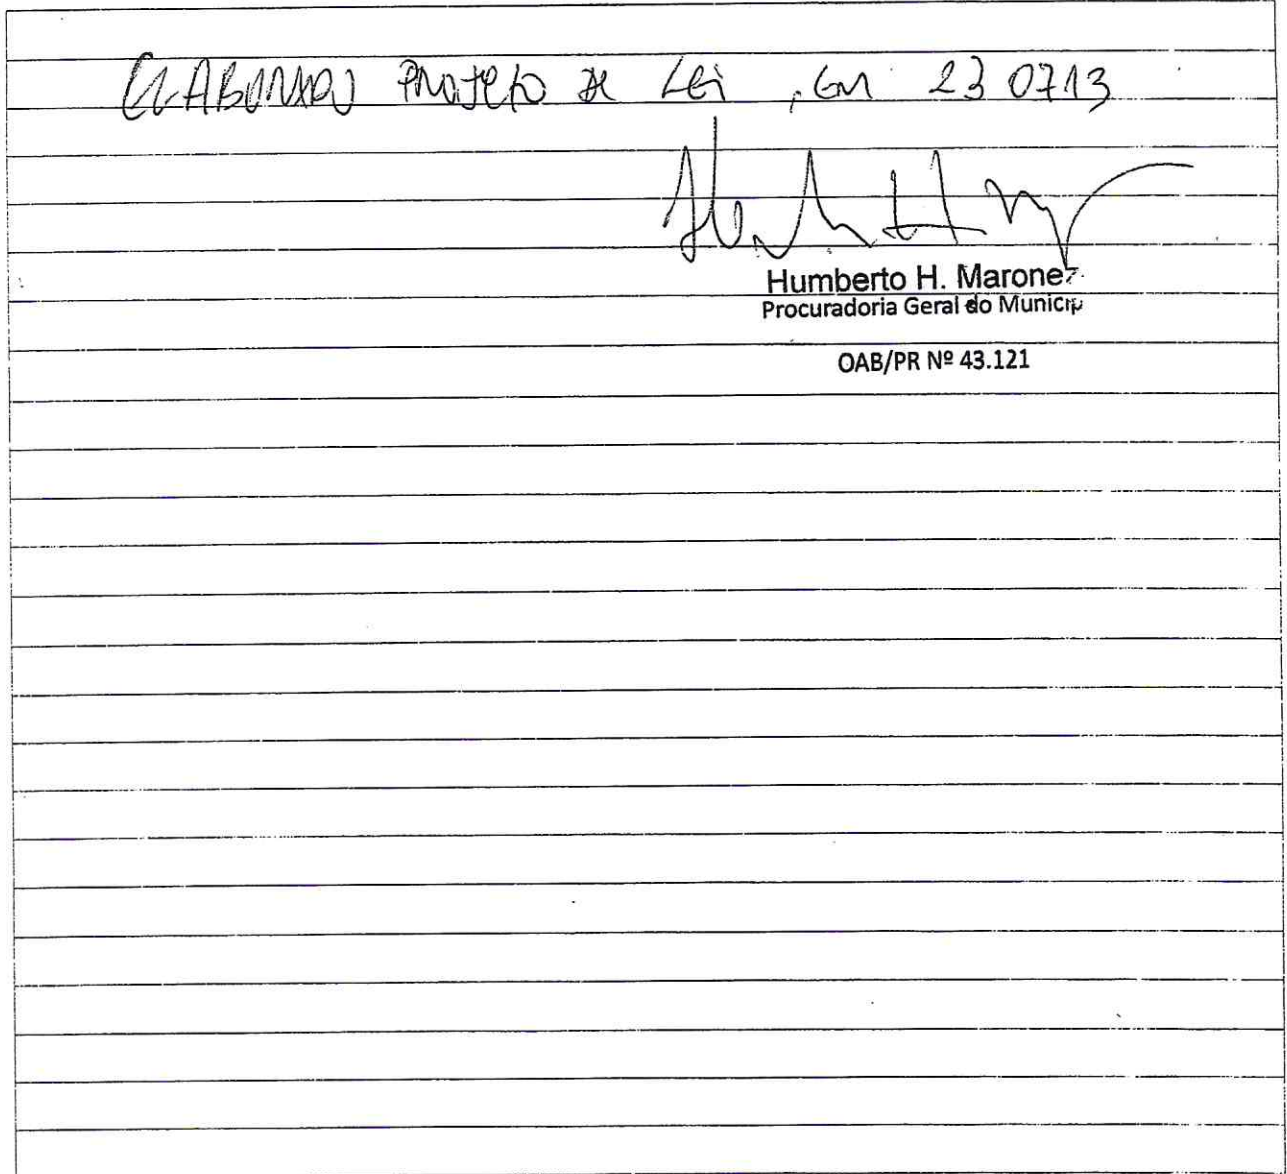 ELABORADO PROJETO DE LEI, EM 23 07 13
Humberto H. Marone
Procuradoria Geral do Municip
OAB/PR Nº 43.121